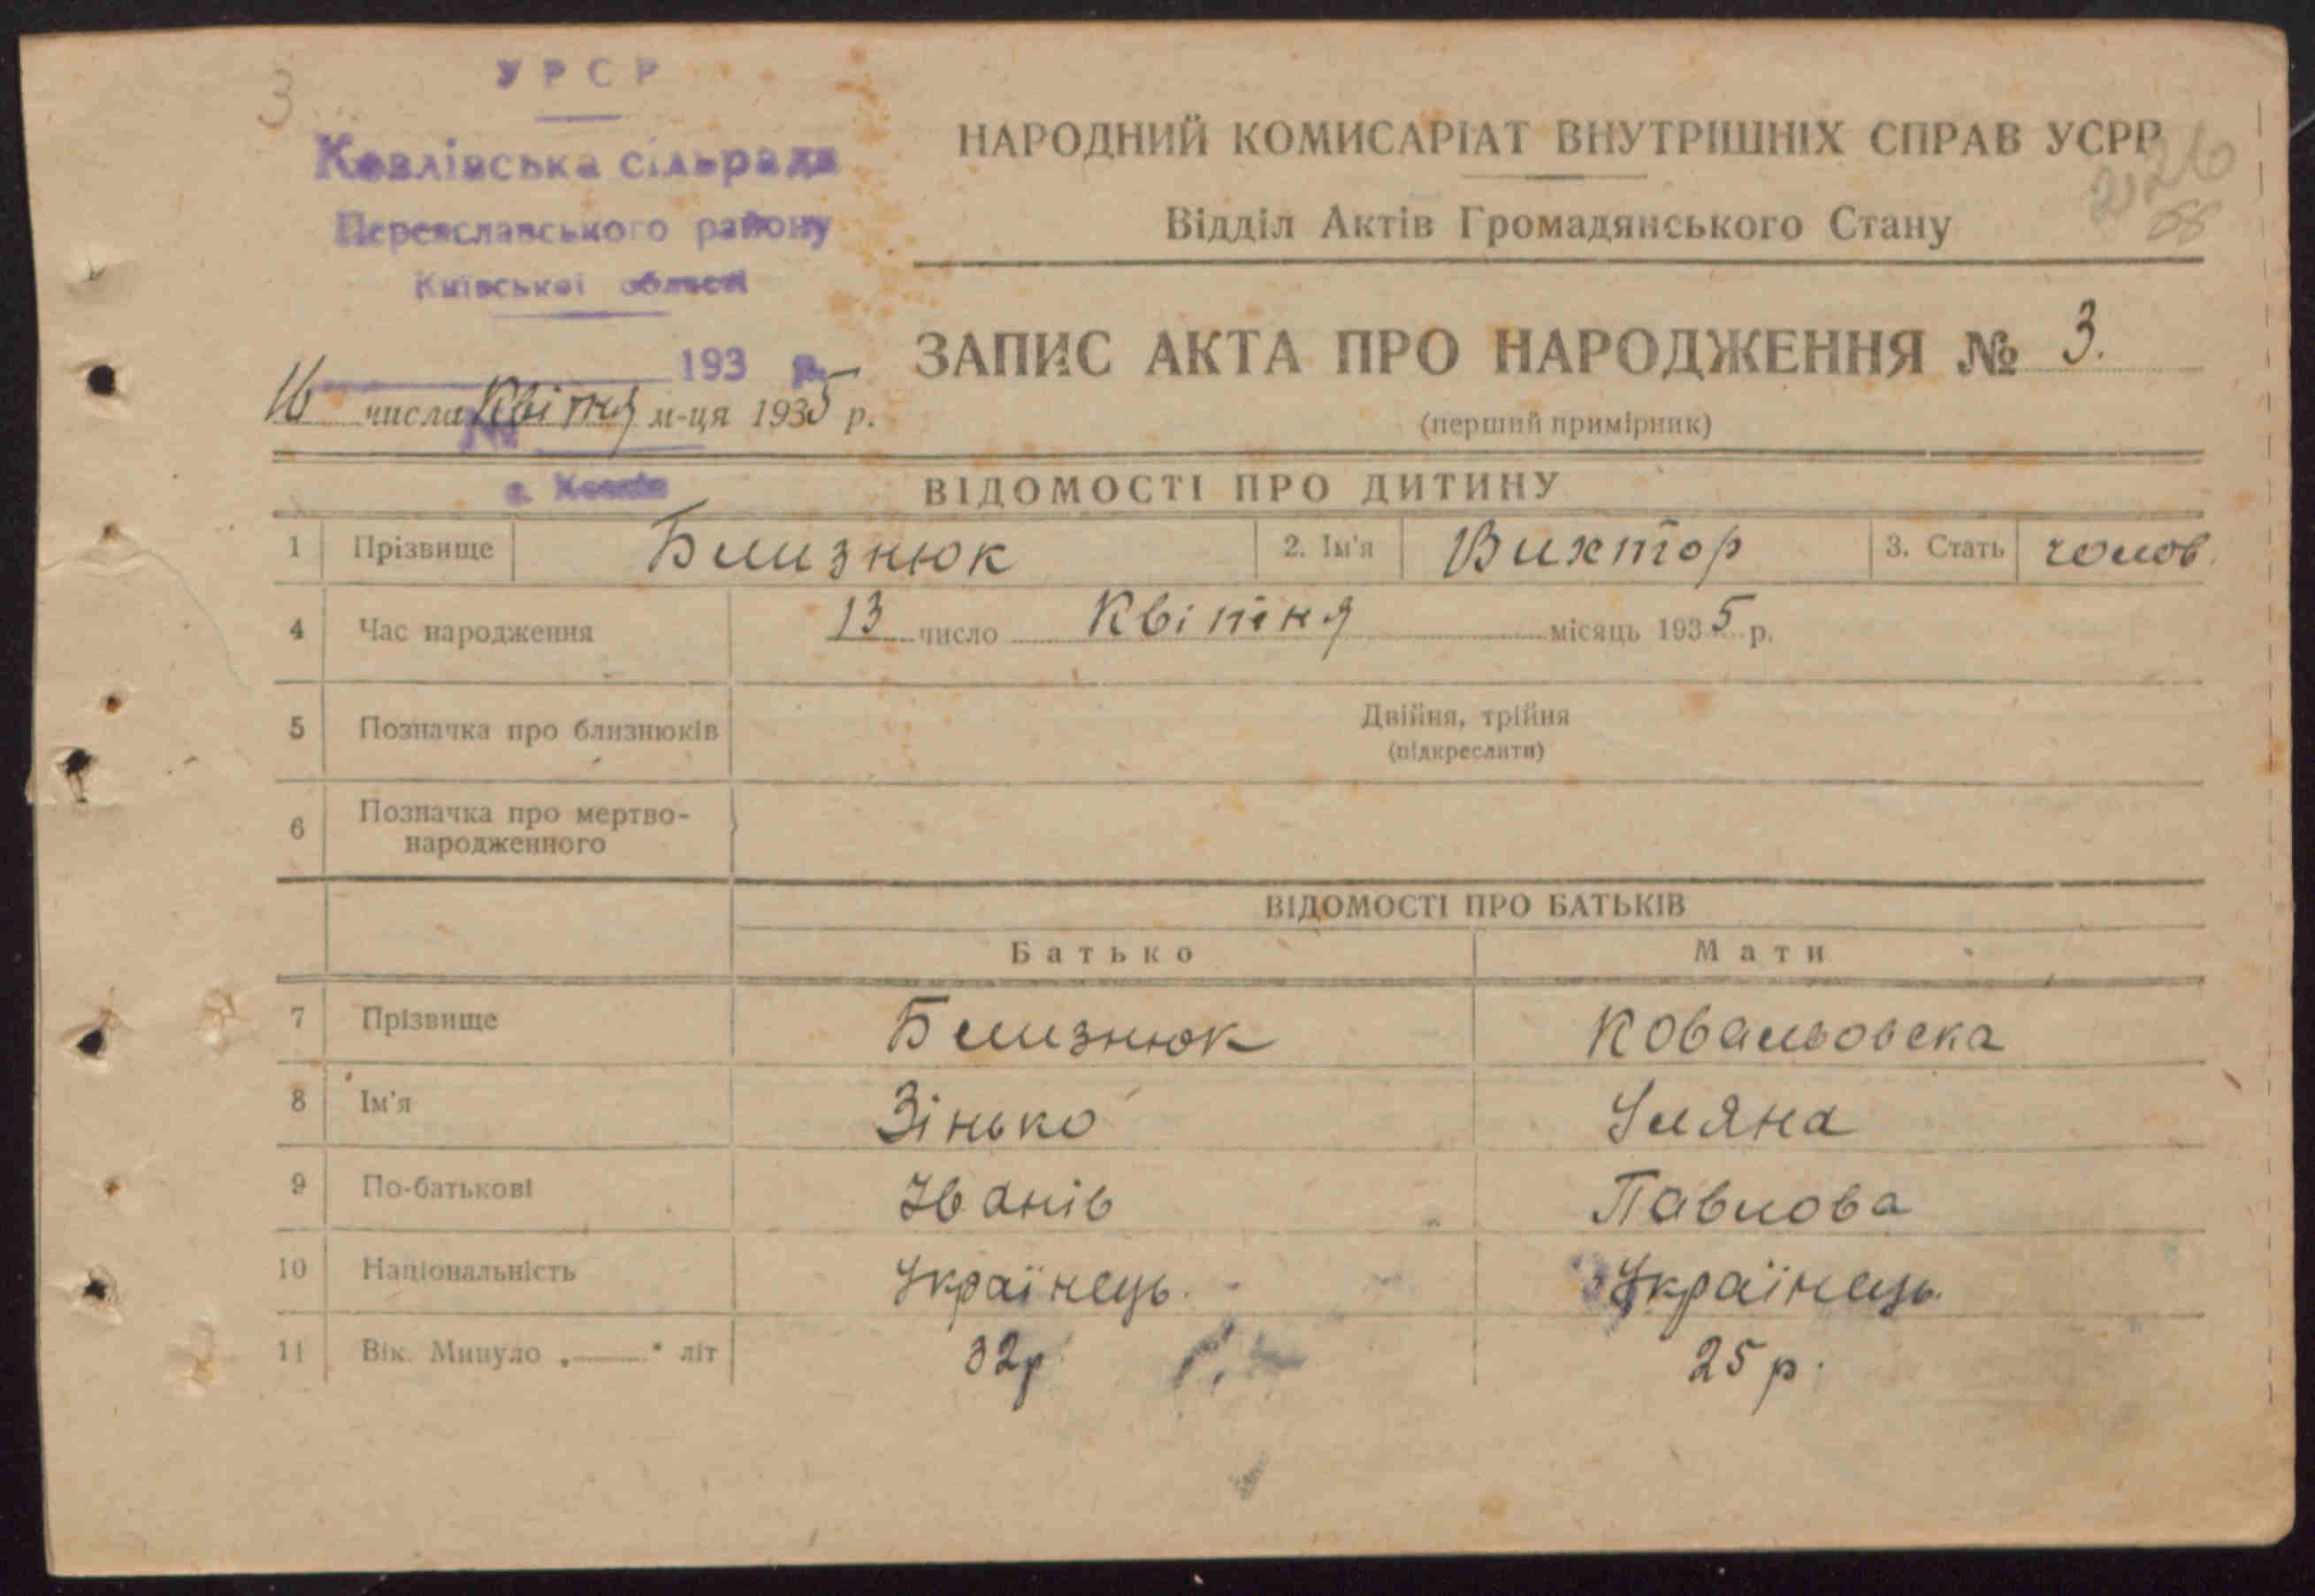 3
УРСР
Ковлівська сільрада
Переяславського району
Київської області
193 р.
№
с. Ковлів
НАРОДНИЙ КОМИСАРІАТ ВНУТРІШНІХ СПРАВ УСРР
26
58
Відділ Актів Громадянського Стану
ЗАПИС АКТА ПРО НАРОДЖЕННЯ № 3.
(перший примірник)
16 числа Квітня м-ця 1935 р.
ВІДОМОСТІ ПРО ДИТИНУ
1 Прізвище Близнюк 2. Ім'я Вихтор 3. Стать чолов.
4 Час народження 13 число Квітня місяць 1935 р.
5 Позначка про близнюків Двійня, трійня
(підкреслити)
6 Позначка про мертво-
народженного
ВІДОМОСТІ ПРО БАТЬКІВ
Батько Мати
7 Прізвище Близнюк Ковальовска
8 Ім'я Зінько Уляна
9 По-батькові Іванів Павлова
10 Національність Українець. Українець.
11 Вік. Минуло „——" літ 32р 25 р.